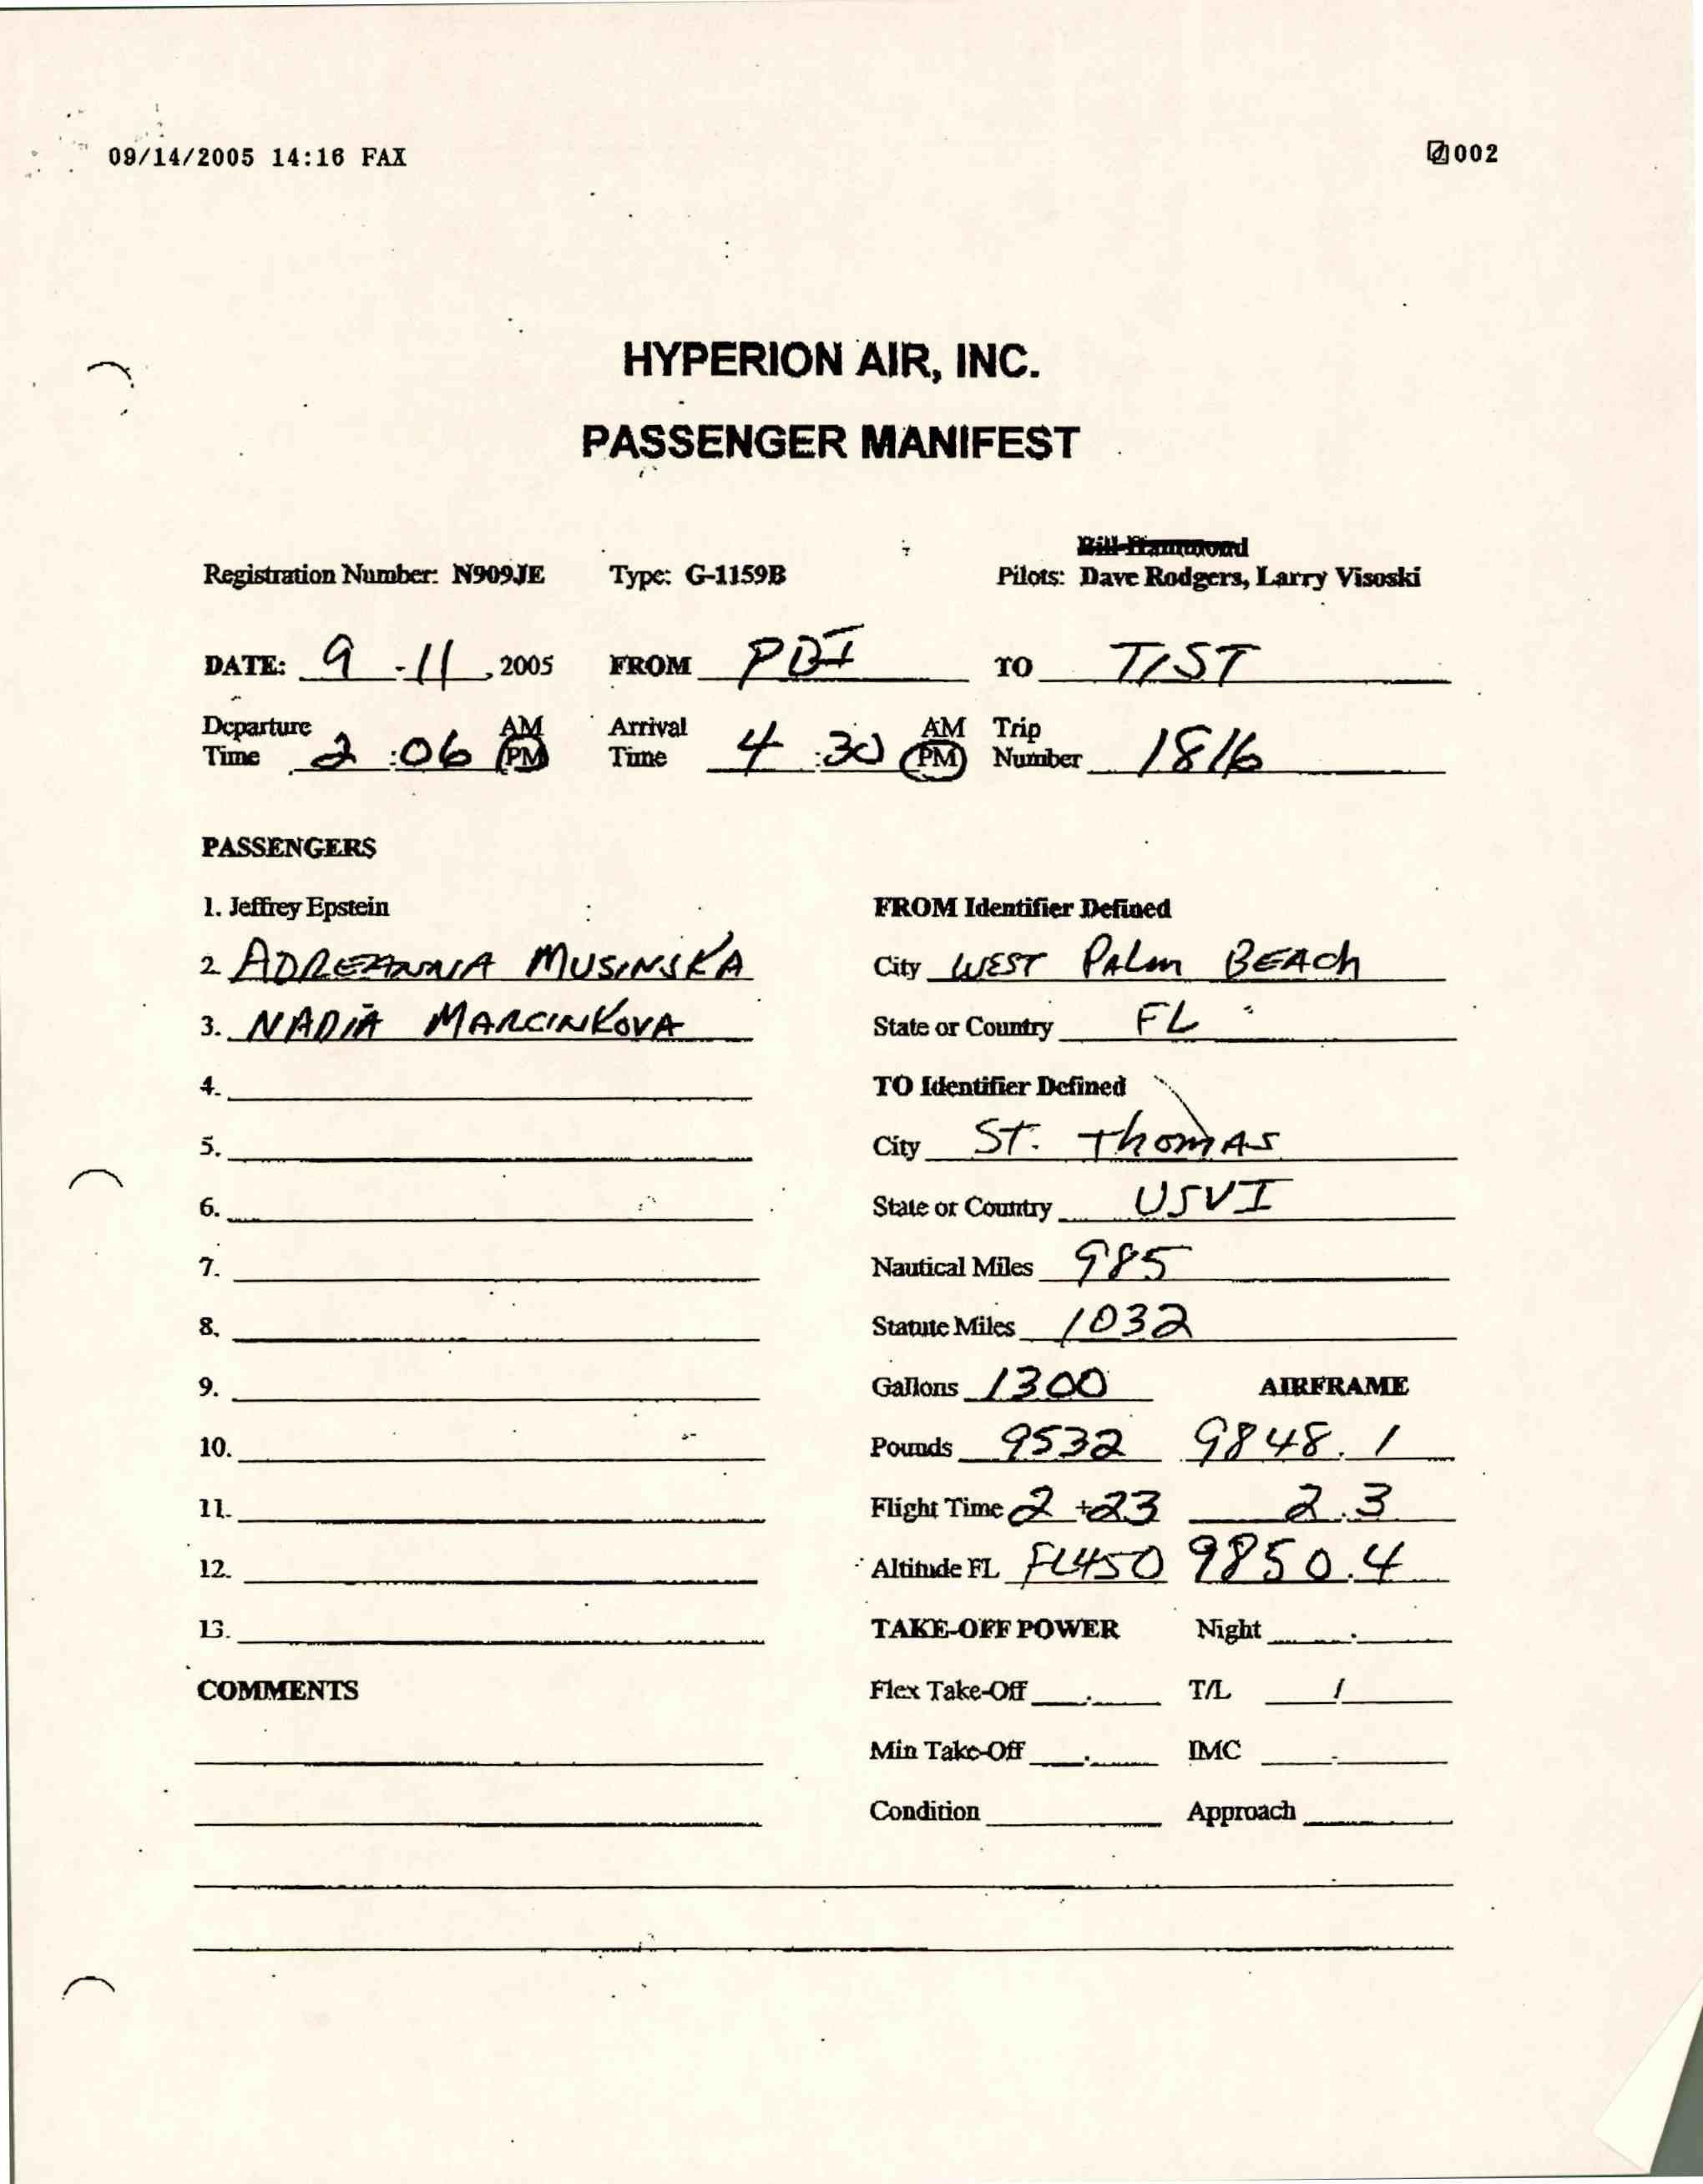 09/14/2005 14:16 FAX 002
HYPERION AIR, INC.
PASSENGER MANIFEST
Bill Hammond
Registration Number: N909JE Type: G-1159B Pilots: Dave Rodgers, Larry Visoski
DATE: 9 - 11, 2005 FROM PBI TO TIST
Departure Time 2:06 AM PM Arrival Time 4:30 AM PM Trip Number 1816
PASSENGERS
1. Jeffrey Epstein FROM Identifier Defined
2. MUSINSKA City WEST PALM BEACH
3. NADIA MARCINKOVA State or Country FL
4. TO Identifier Defined
5. City ST. THOMAS
6. State or Country USVI
7. Nautical Miles 985
8. Statute Miles 1032
9. Gallons 1300 AIRFRAME
10. Pounds 9532 9848.1
11. Flight Time 2+23 2.3
12. Altitude FL FL450 9850.4
13. TAKE-OFF POWER Night
COMMENTS Flex Take-Off T/L /
Min Take-Off IMC
Condition Approach